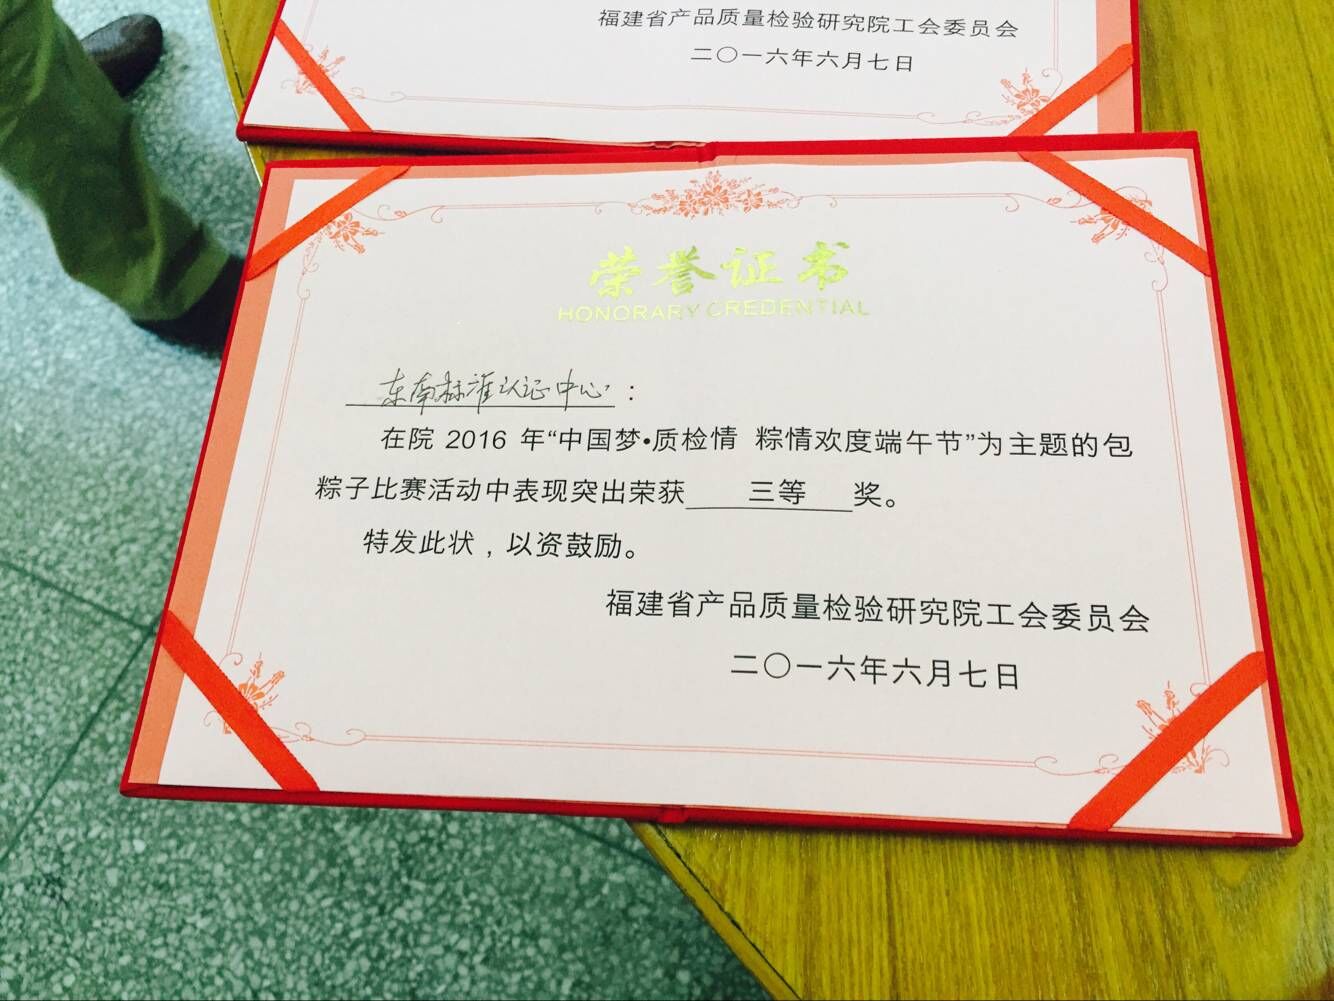 福建省产品质量检验研究院工会委员会
二〇一六年六月七日
荣誉证书
HONORARY CREDENTIAL
东南标准认证中心：
在院 2016 年“中国梦•质检情 粽情欢度端午节”为主题的包
粽子比赛活动中表现突出荣获 三等 奖。
特发此状，以资鼓励。
福建省产品质量检验研究院工会委员会
二〇一六年六月七日